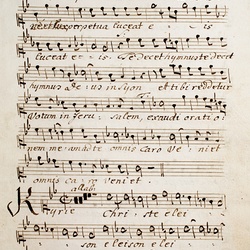 et lux perpetua luceat e is
luceat e is. Te decet hymnus te decet
hymnus De us in Sion et tibi reddetur
Votum in Jeru salem, exaudi oratio
nem meam ad te omnis caro ve ni et
omnis ca ro veniet.
allab:
Kyrie Chri ste elei
son eleison elei